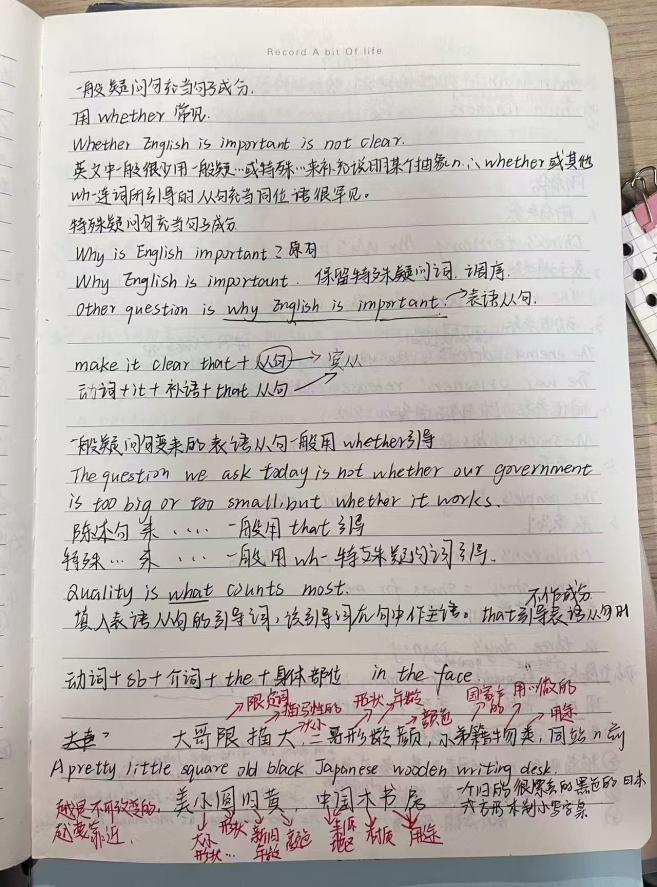 Record A bit Of life
一般疑问句充当句子成分.
用 whether 常见.
Whether English is important is not clear.
英文中一般很少用一般疑…或特殊…来补充说明某个抽象n.∴whether或其他
wh-连词所引导的从句充当同位语很罕见。
特殊疑问句充当句子成分
Why is English important? 原句
Why English is important. 保留特殊疑问词.调序.
Other question is why English is important. →表语从句.
make it clear that + 从句 → 宾从
动词+it+补语+that 从句
一般疑问句变来的表语从句一般用 whether引导
The question we ask today is not whether our government
is too big or too small, but whether it works.
陈述句 来 .... 一般用 that 引导
特殊... 来 .... 一般用 wh-特殊疑问词引导.
Quality is what counts most.
不作成分
填入表语从句的引导词,该引导词在句中作主语。that引导表语从句时
动词+sb+介词+the+身体部位 in the face.
限定词 描写性的 大小 形状 年龄 颜色 国家 的 用…做的 用途
大哥限描大,二哥形龄颜,小弟籍物类,同站n前
A pretty little square old black Japanese wooden writing desk.
一个旧的很漂亮的黑色的日本
方形木制小写字桌
越是不可改变的,
越要靠近.
美小圆旧黄,中国木书房
大小 形状… 形状 新旧 年龄 颜色 地区 材质 用途